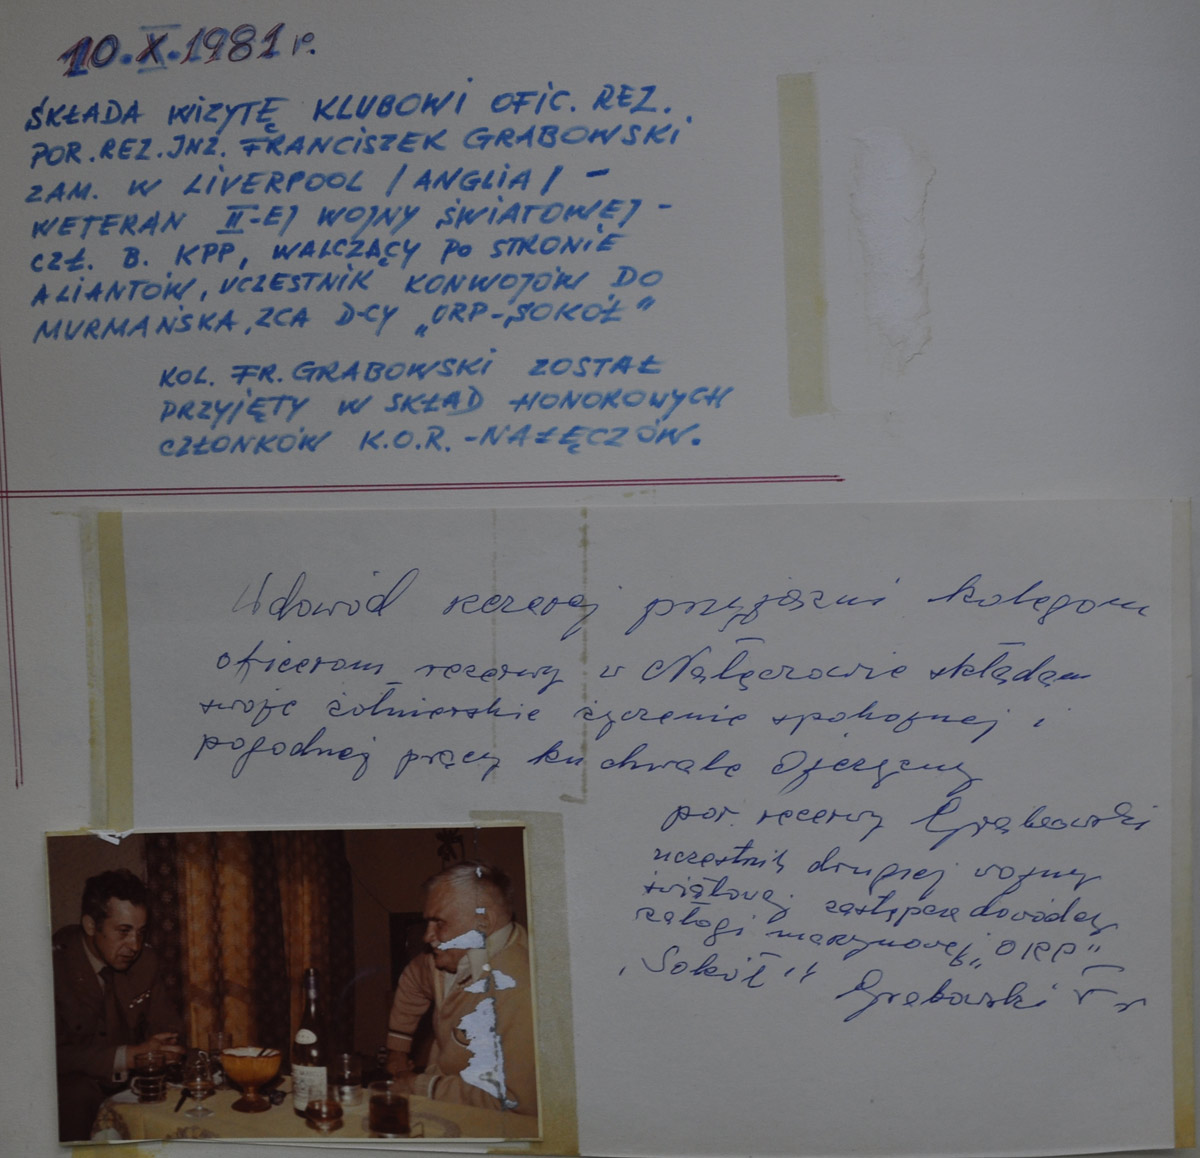 10.X.1981 r.
SKŁADA WIZYTĘ KLUBOWI OFIC. REZ.
POR. REZ. INŻ. FRANCISZEK GRABOWSKI
ZAM. W LIVERPOOL /ANGLIA/ –
WETERAN II-EJ WOJNY ŚWIATOWEJ –
CZŁ. B. KPP, WALCZĄCY PO STRONIE
ALIANTÓW, UCZESTNIK KONWOJÓW DO
MURMAŃSKA, ZCA D-CY „ORP-SOKÓŁ”
KOL. FR. GRABOWSKI ZOSTAŁ
PRZYJĘTY W SKŁAD HONOROWYCH
CZŁONKÓW K.O.R. -NAŁĘCZÓW.
W dowód szczerej przyjaźni kolegom
oficerom rezerwy w Nałęczowie składam
swoje żołnierskie życzenie spokojnej i
pogodnej pracy ku chwale Ojczyzny
por. rezerwy Grabowski
uczestnik drugiej wojny
światowej zastępca dowódcy
załogi marynowej „ORP”
„Sokół” Grabowski Fr